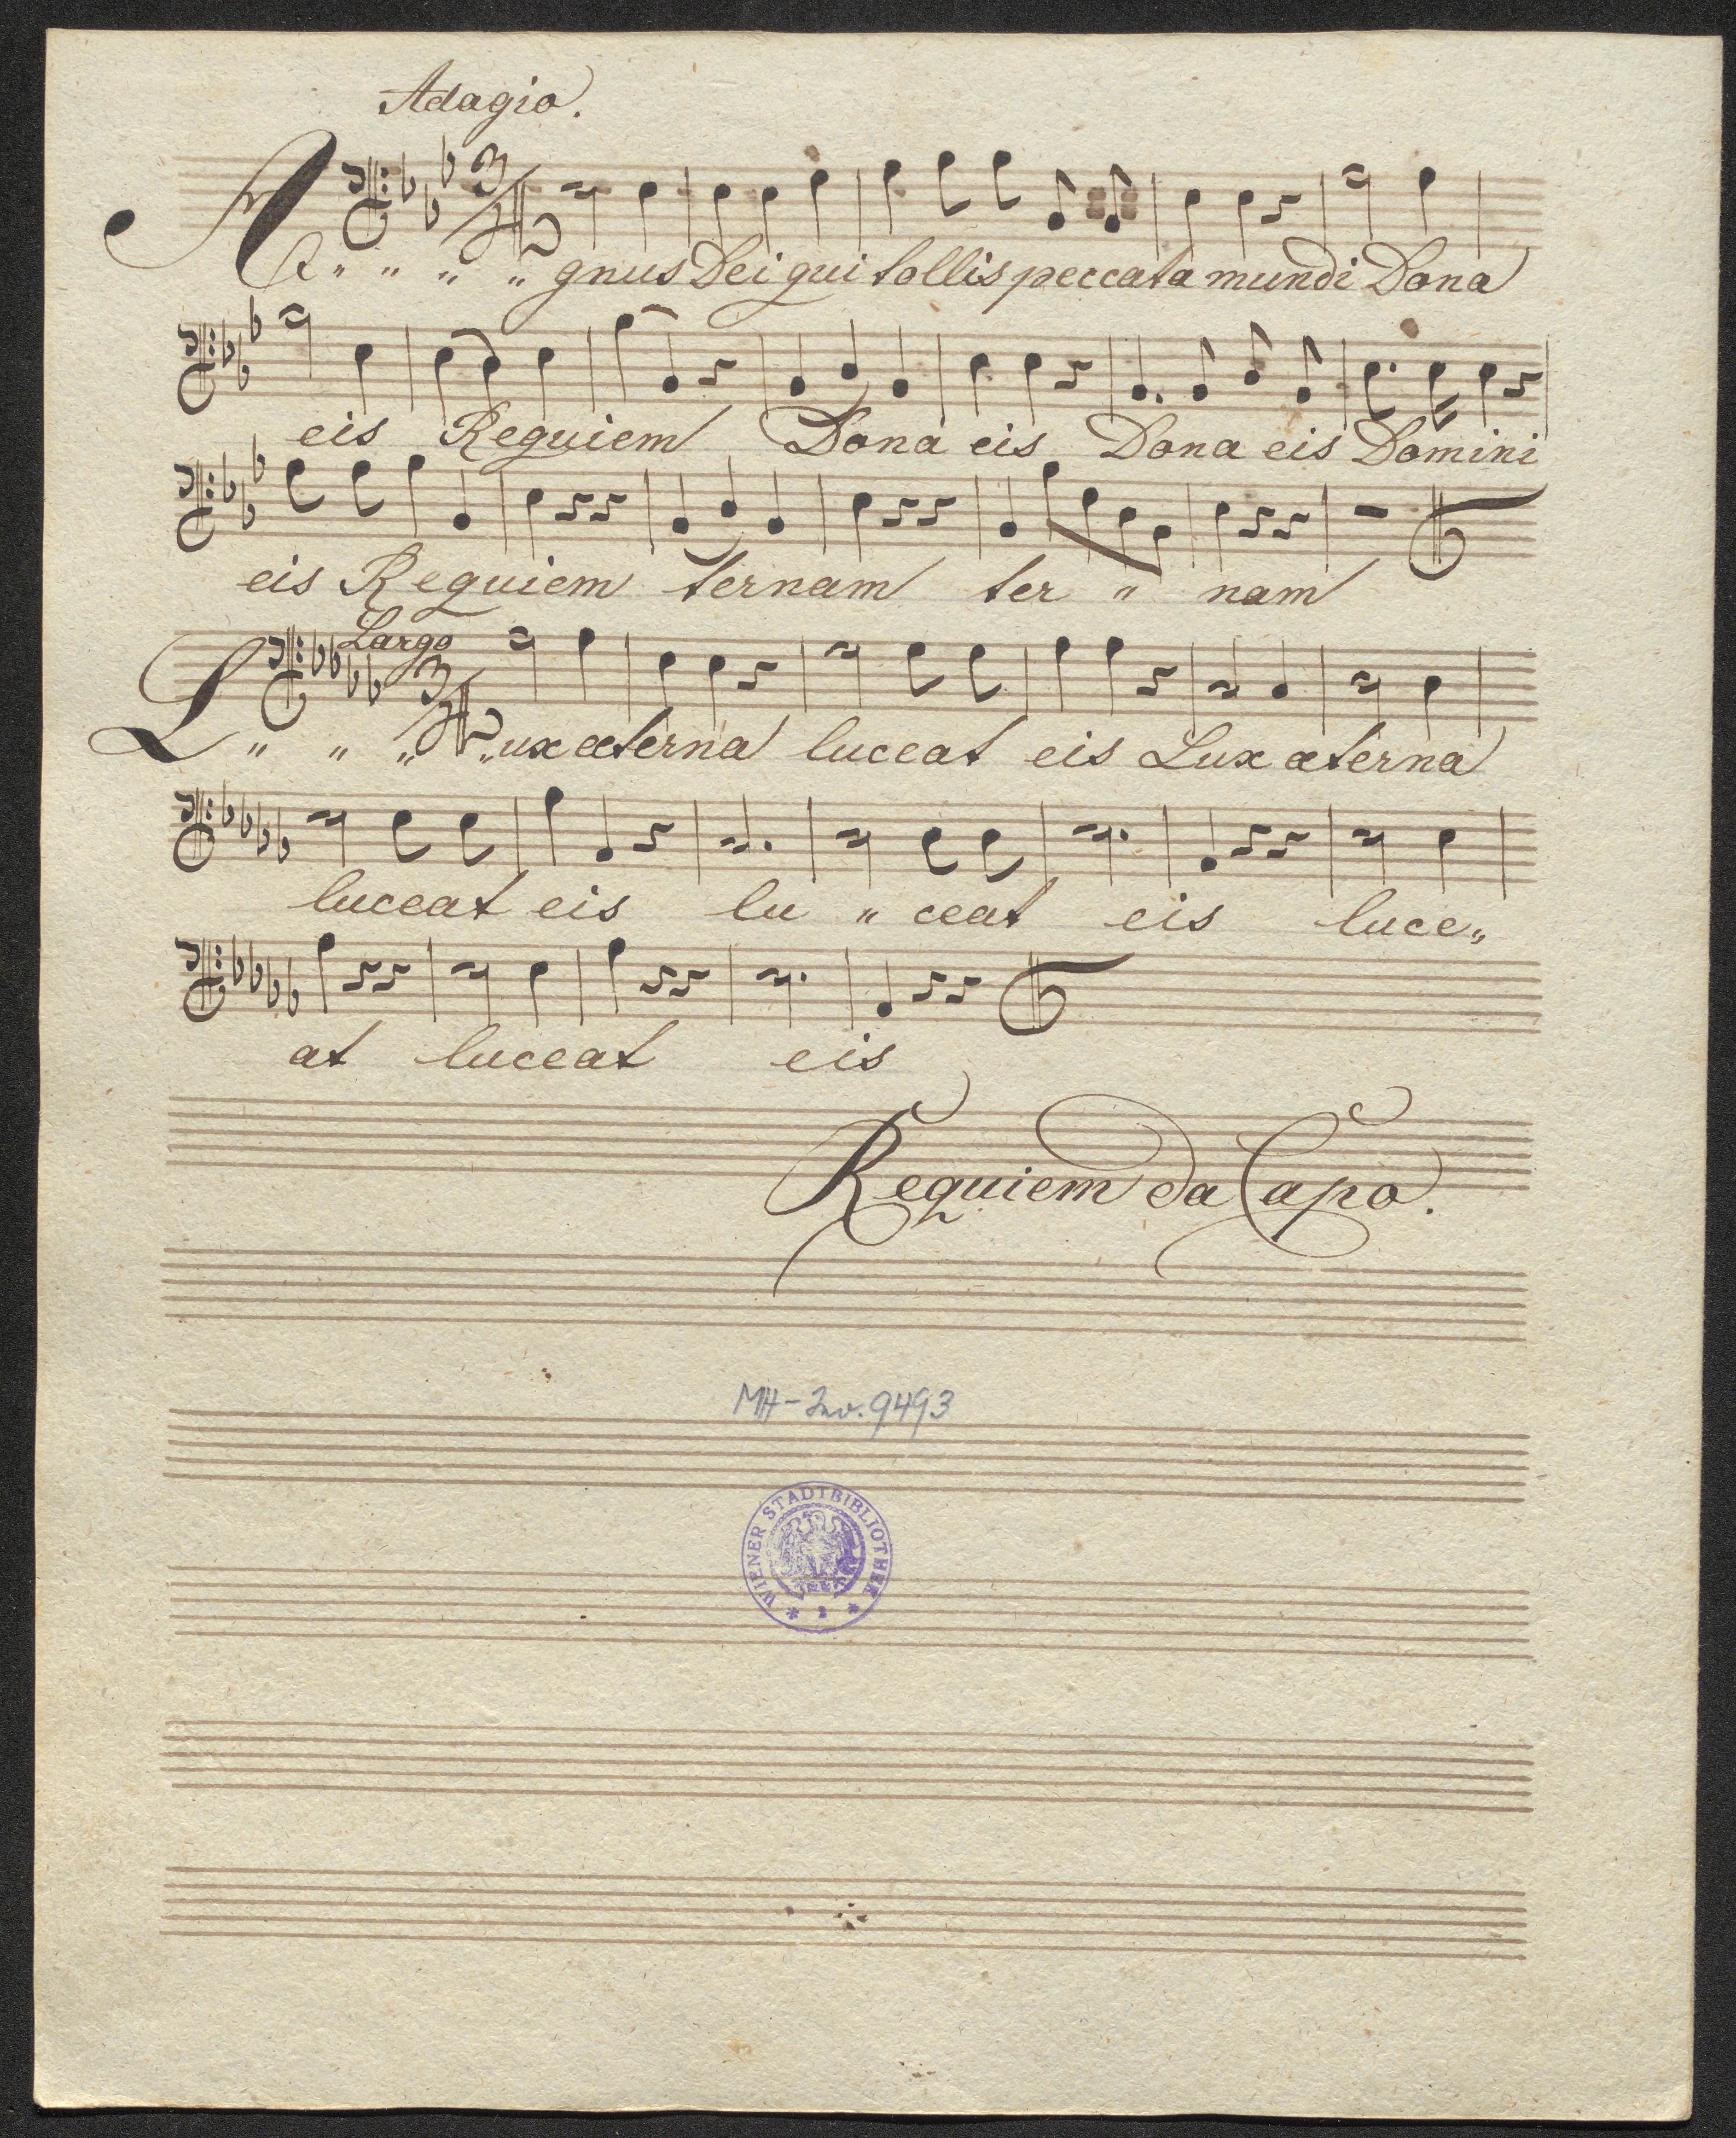 Adagio.
A " " " " gnus Dei qui tollis peccata mundi Dona
eis Requiem Dona eis Dona eis Domini
eis Requiem ternam ter " nam
Largo
L " " " " ux æterna luceat eis Lux æterna
luceat eis lu " ceat eis luce "
at luceat eis
Requiem da Capo.
MH-Inv. 9493
WIENER STADTBIBLIOTHEK